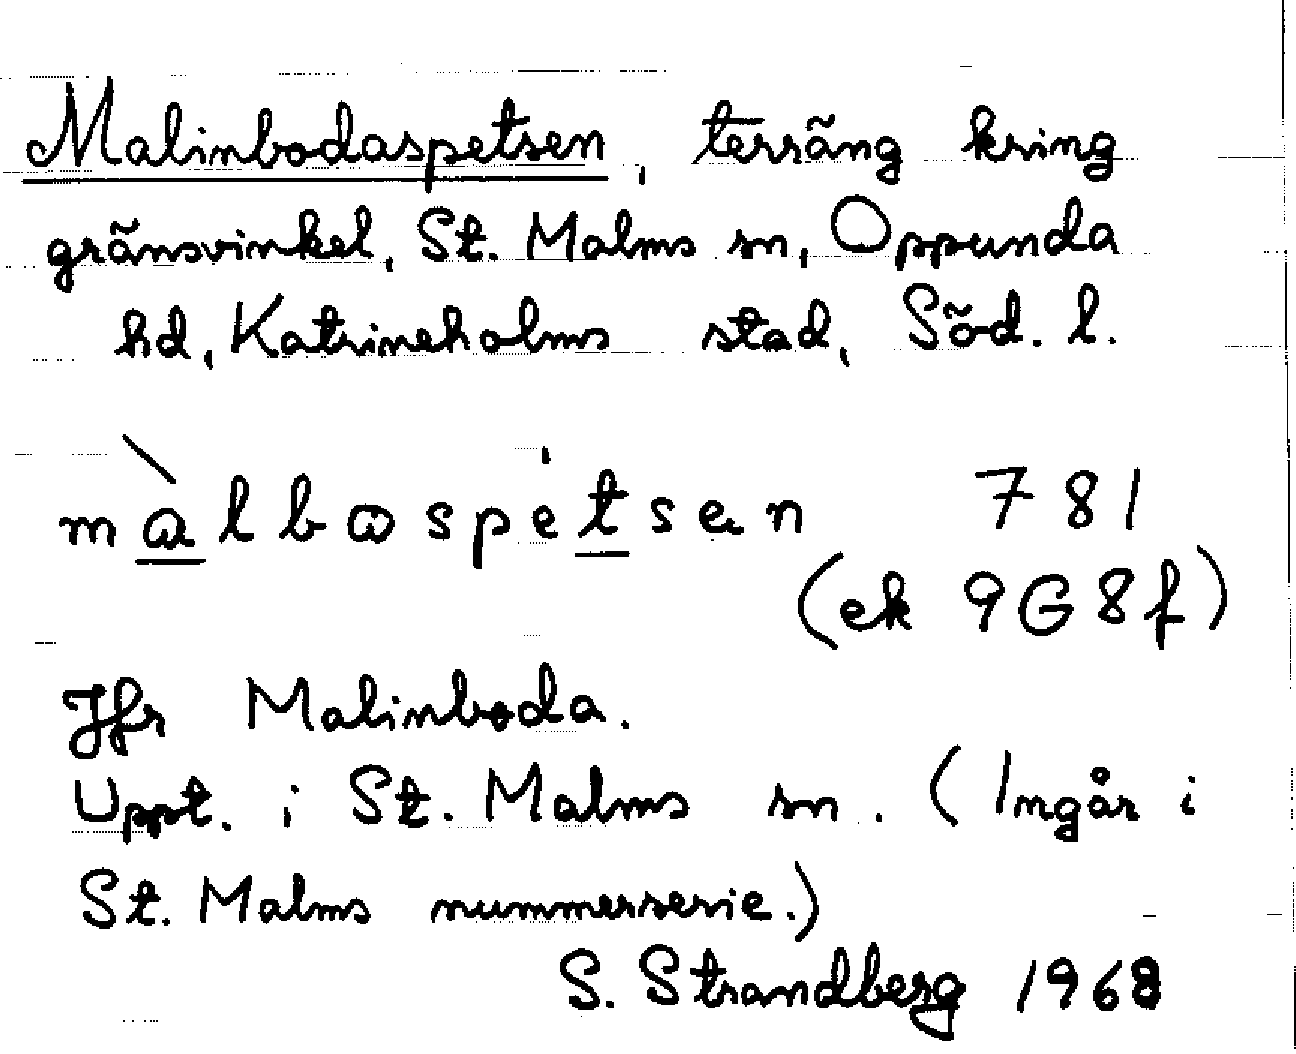 Malinbodaspetsen, terräng kring
gränsvinkel, St. Malms sn, Oppunda
hd, Katrineholms stad, Söd. l.
màlbɷspetsen 781
(ek 9G8f)
Jfr Malinboda.
Uppt. i St. Malms sn. (Ingår i
St. Malms nummerserie.)
S. Strandberg 1968